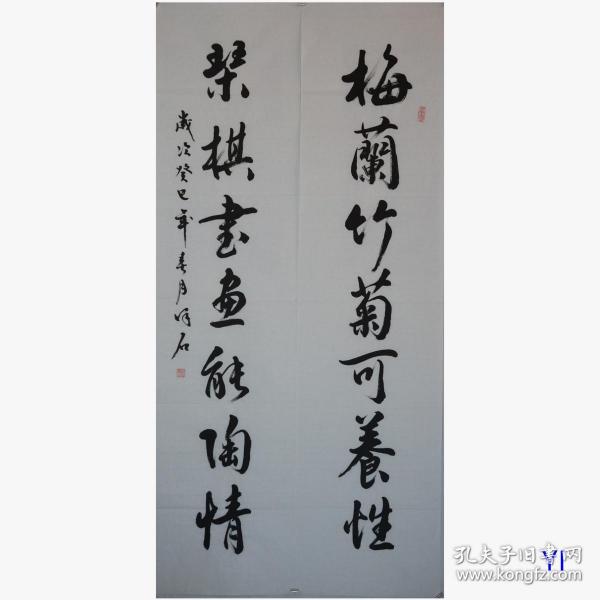 梅蘭竹菊可養性
琴棋书画能陶情
歲次癸巳年春月
石
孔夫子旧书网
www.kongfz.com
YI